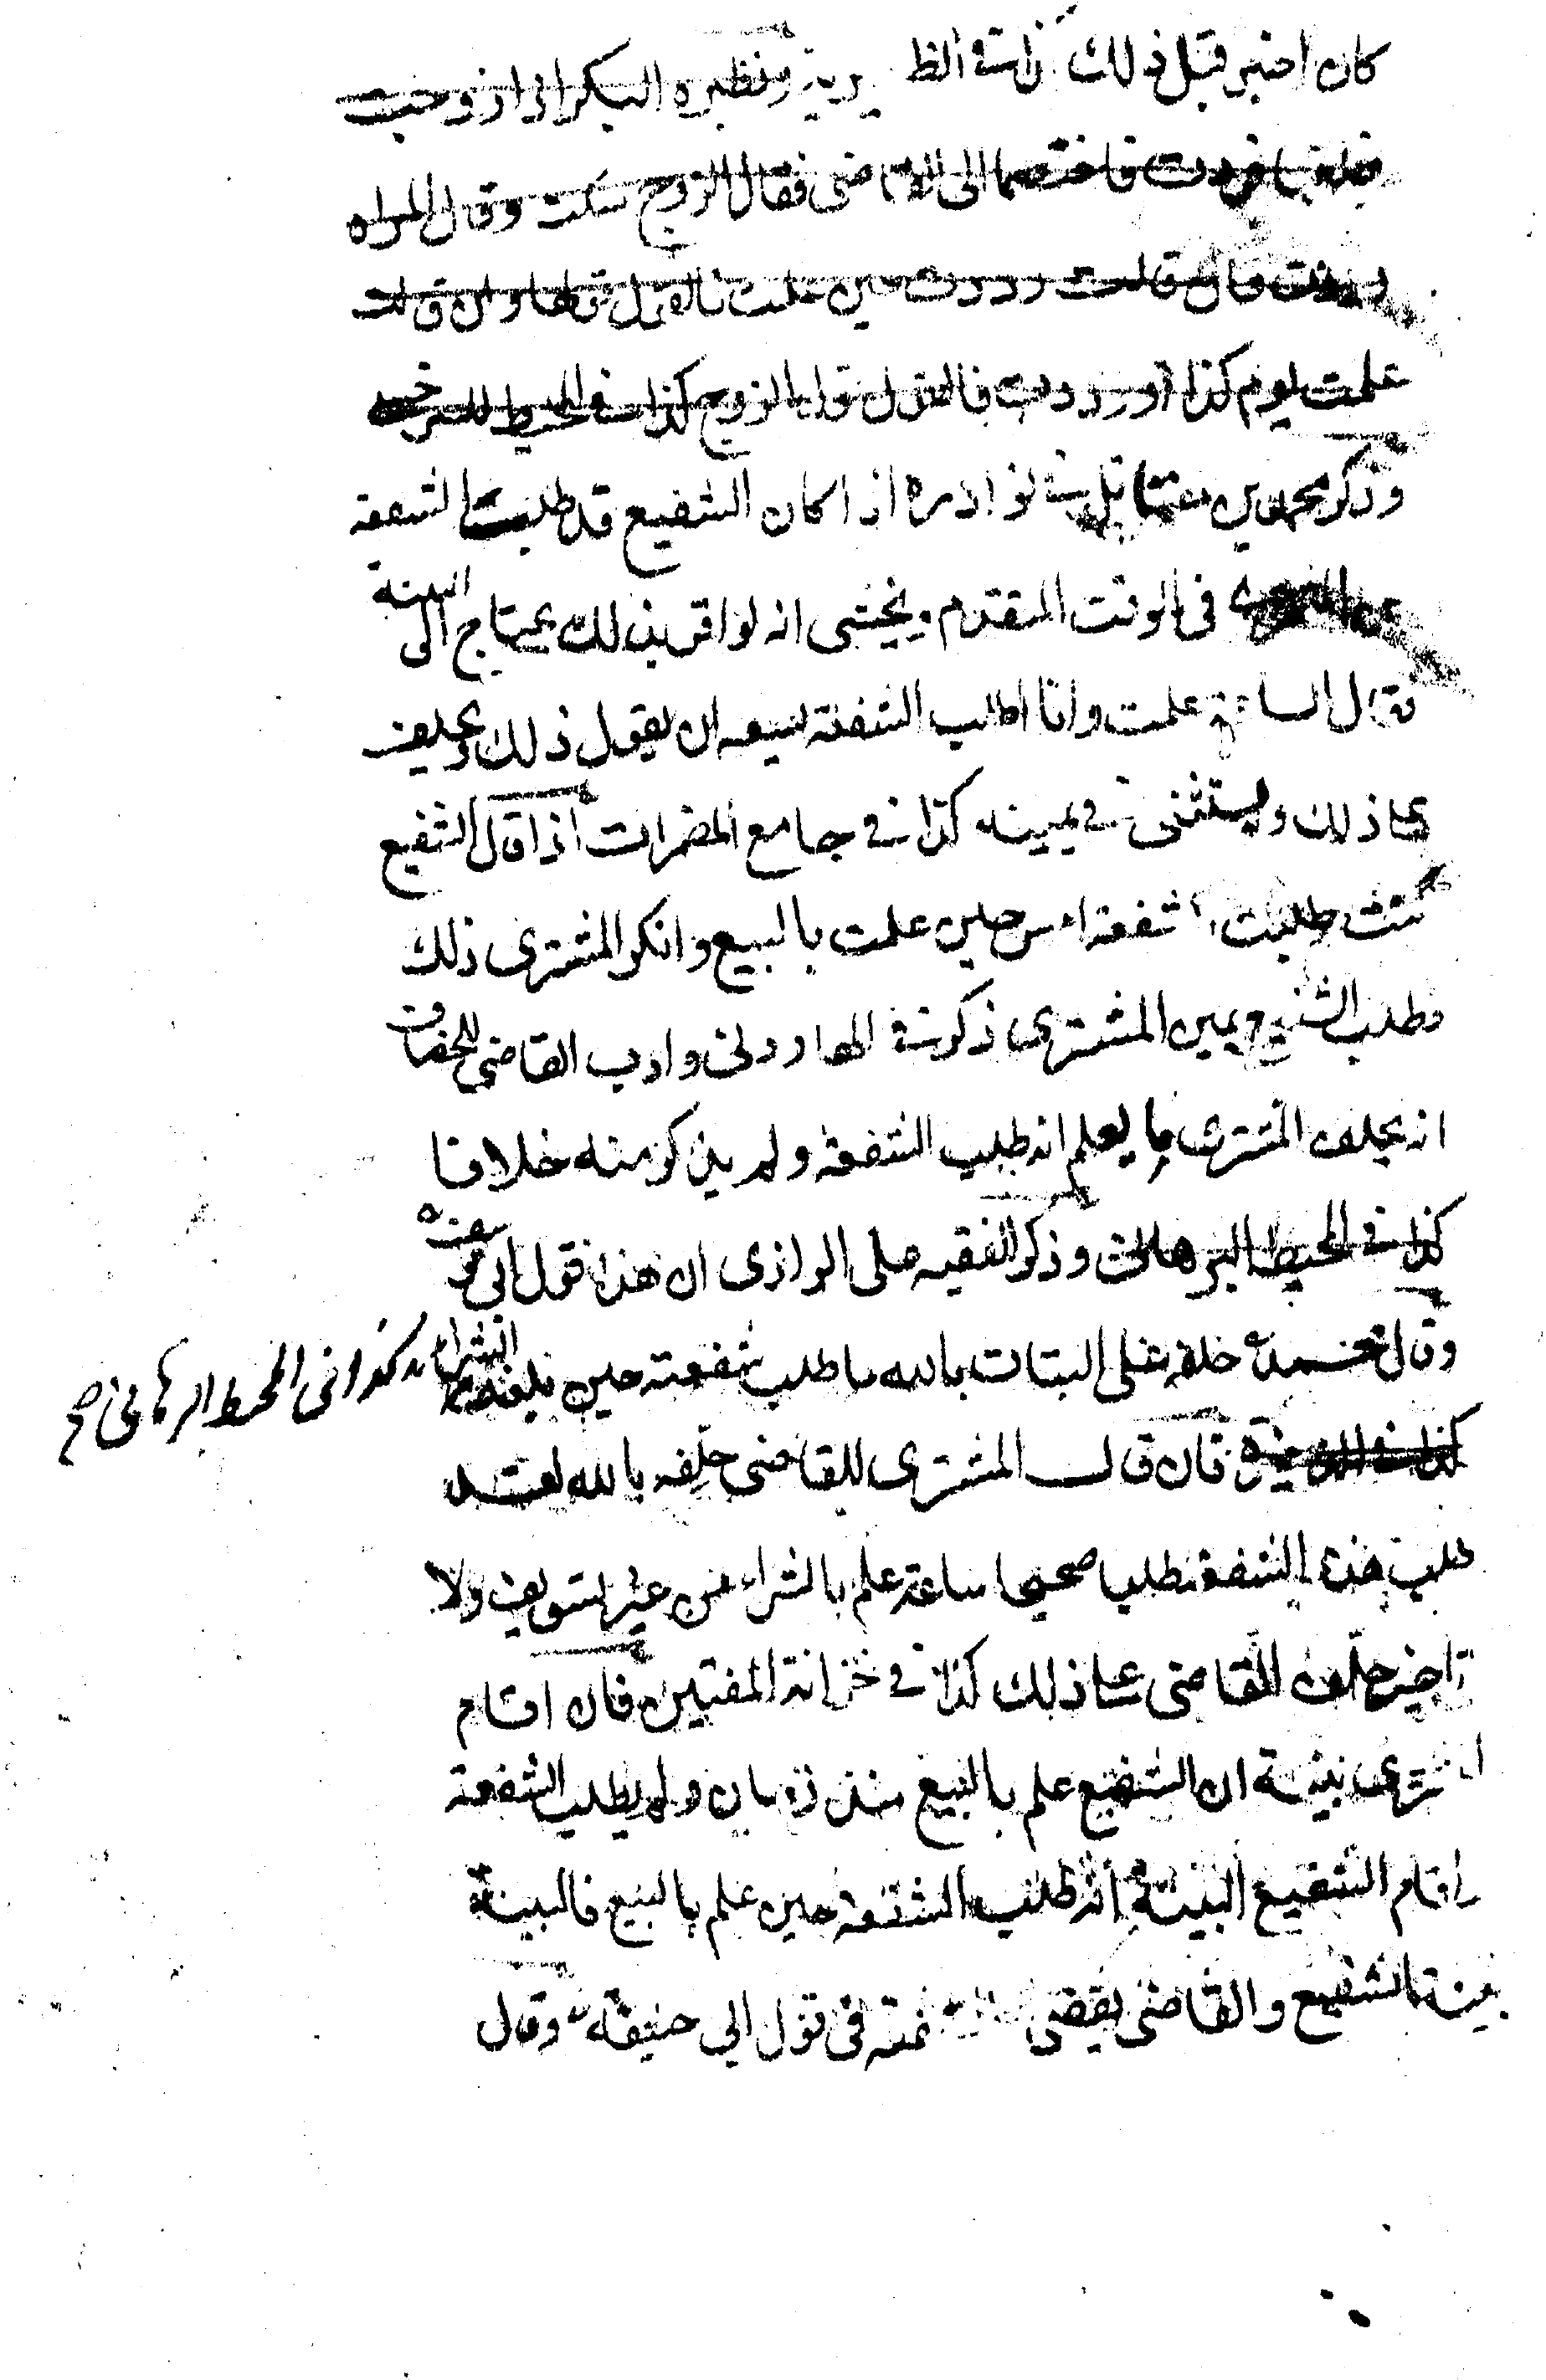 كان اخبر قبل ذلك كذا في الظهيرية ونظيره البكر اذا زوجت
فبلغها فردت فاختصما الى القاضي فقال الزوج سكت وقال المراه
رددت فان قالت رددت حين علمت فالقول قولها وان قالت
علمت يوم كذا ورددت فالقول قول الزوج كذا في المحيط للسرخسي
وذكر محمد بن مقاتل في نوادره اذا كان الشفيع قد طلب الشفعة
من المشتري في الوقت المتقدم ويخشى انه لو اقر بذلك يحتاج الى البينة
فقال الساعة علمت وانا اطلب الشفعة يسعه ان يقول ذلك ويحلف
على ذلك ويستثنى في يمينه كذا في جامع المضمرات اذا قال الشفيع
كنت طلبت الشفعة امس حين علمت بالبيع وانكر المشترى ذلك
وطلب الشفيع يمين المشترى ذكر في الهارونى وادب القاضى للخصاف
انه يحلف المشترى ما يعلم انه طلب الشفعة ولم يذكر منه خلافا
كذا في المحيط البرهانى وذكر الفقيه على الرازى ان هذا قول ابى يوسف
وقال محمد حلفه على البتات بالله ما طلب شفعته حين بلغه الشراء
كذا في المحيط البرهانى صح
كذا في الذخيرة فان قال المشترى للقاضى حلفه بالله لقد
طلب هذه الشفعة طلبا صحيحا ساعة علم بالشراء من غير تسويف ولا
تاخير حلفه القاضى على ذلك كذا في خزانة المفتين فان اقام
المشترى بينة ان الشفيع علم بالبيع منذ زمان ولم يطلب الشفعة
واقام الشفيع البينة انه طلب الشفعة حين علم بالبيع فالبينة
بينة الشفيع والقاضى يقضى بالشفعة في قول ابى حنيفة وقال